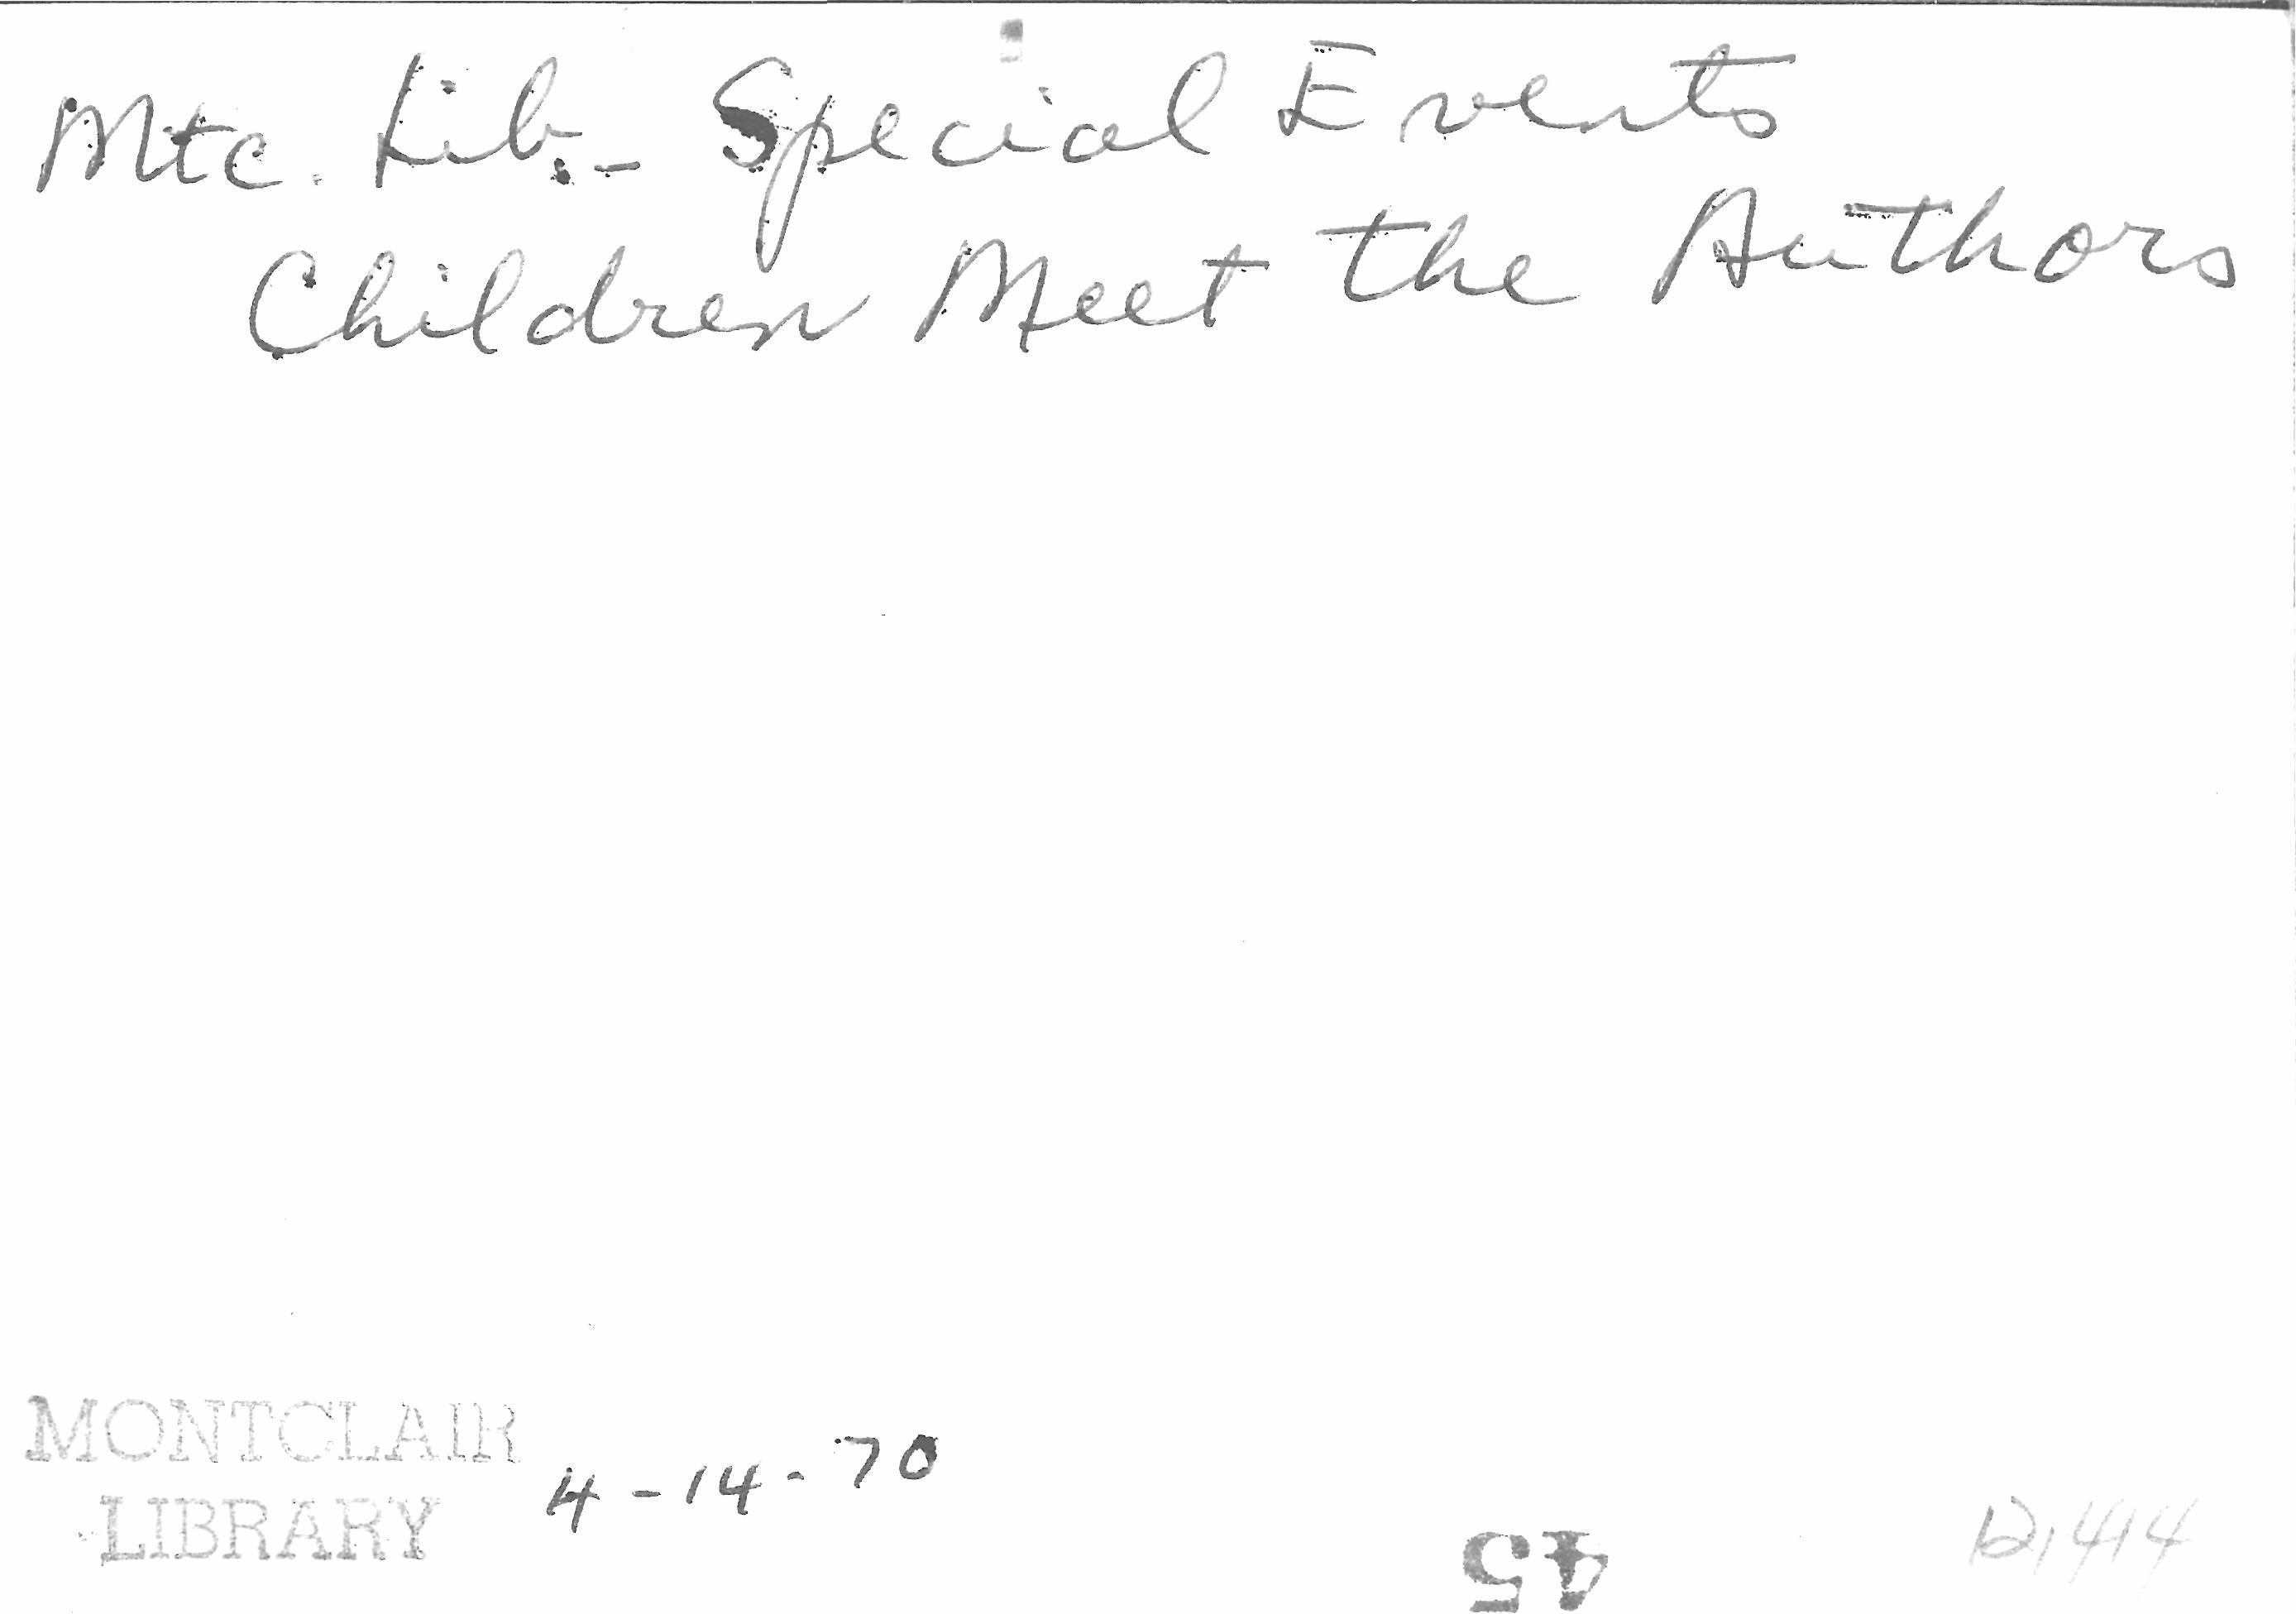 Mtc. Lib. - Special Events
Children Meet the Authors
MONTCLAIR
LIBRARY
4-14-70
45